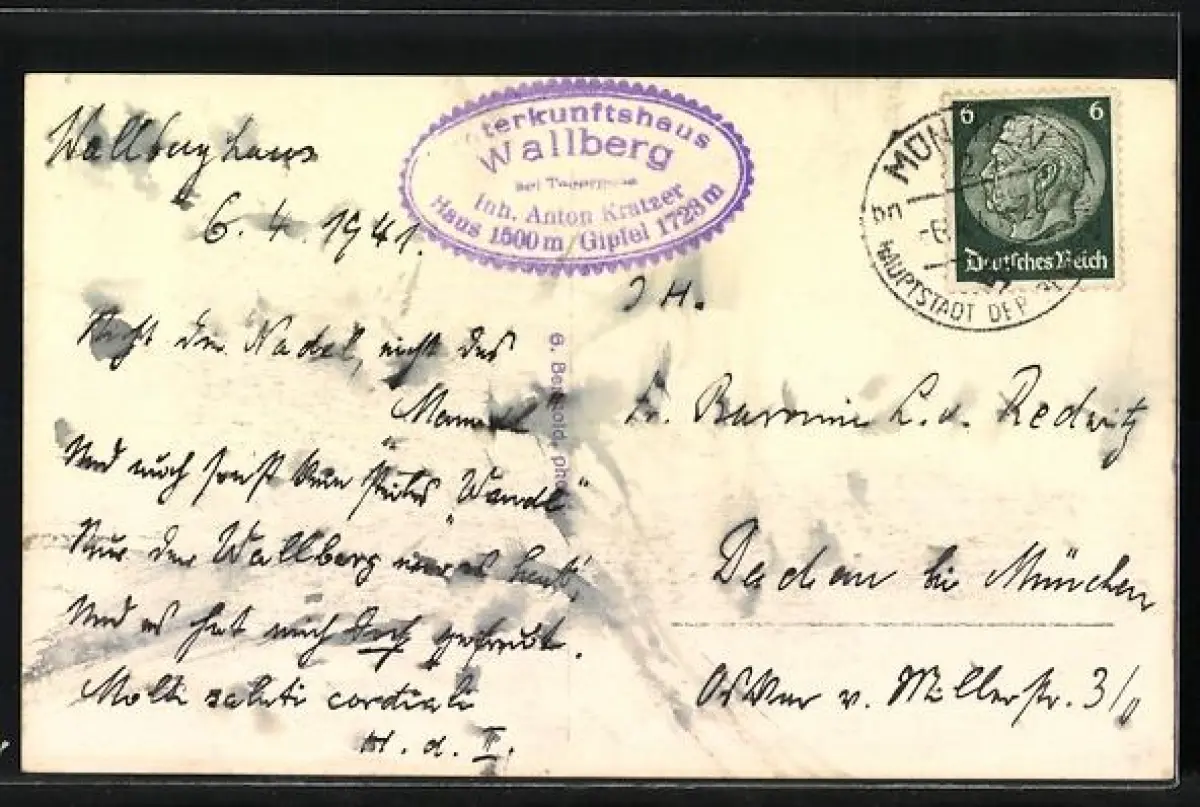 Wallberghaus
6. 4. 1941.
Nicht der Nadel, nicht das
Mandl
Und auch sonst kein steiles "Wandl"
Nur der Wallberg war es heut',
Und es hat mich doch gefreut.
Molti saluti cordiali
H. d. II.
terkunftshaus
Wallberg
bei Tegernsee
Inh. Anton Kratzer
Haus 1500 m / Gipfel 1723 m
6.
MÜN
HAUPTSTADT DER
6 6
Deutsches Reich
I H.
Fr. Baronin L. v. Redwitz
Dachau bei München
Oskar v. Millerstr. 3/0